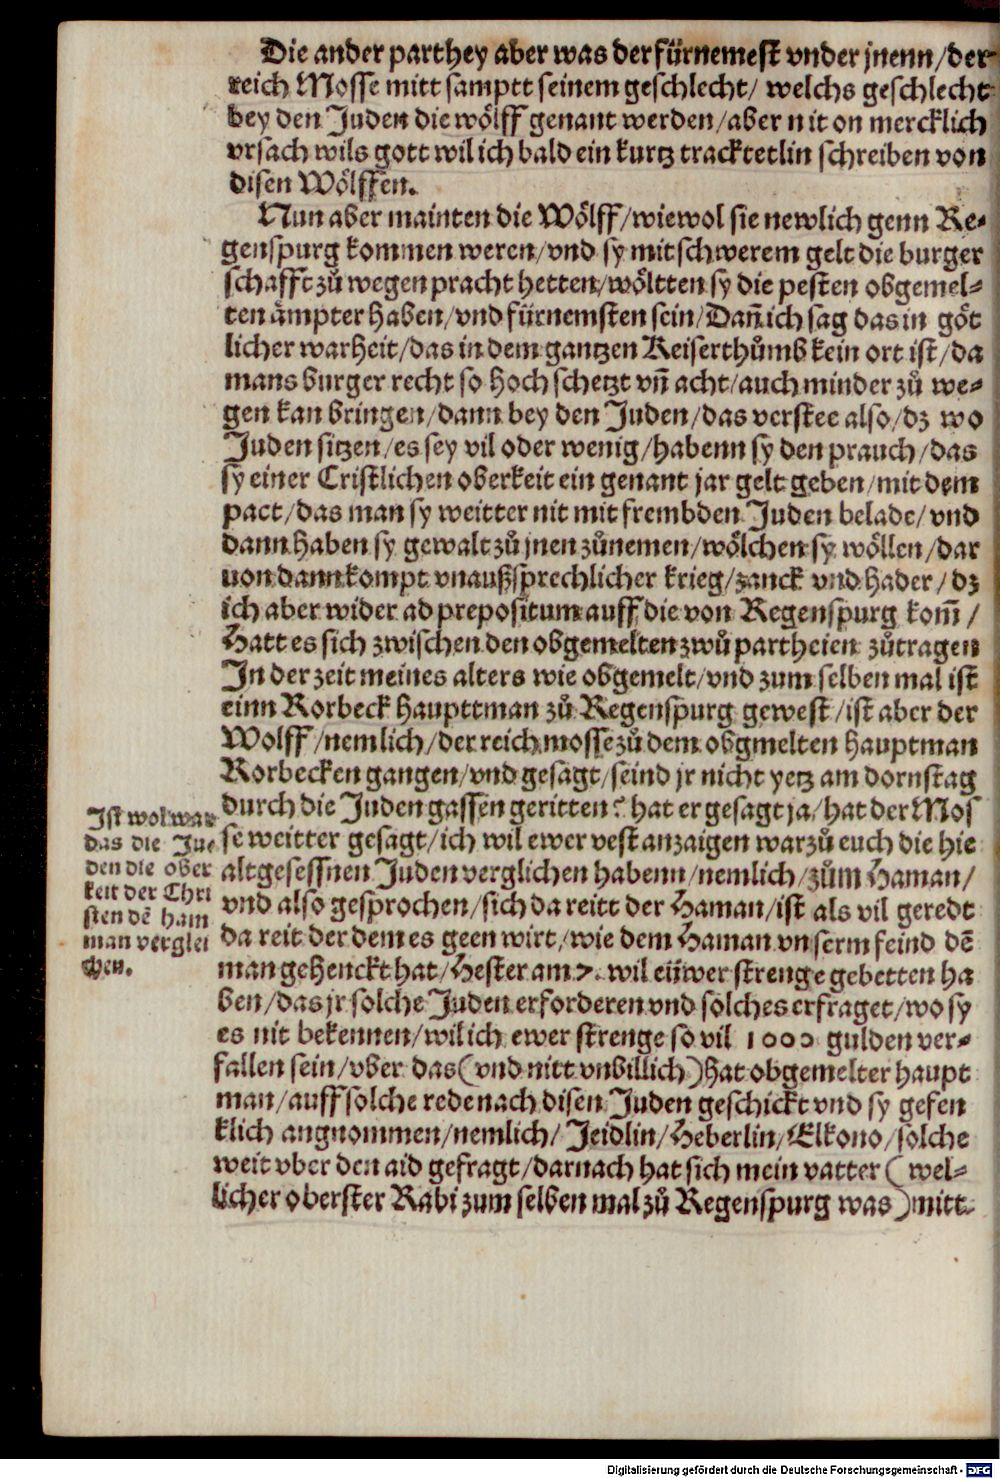 Die ander parthey aber was der fürnemest vnder jnenn/der
reich Mosse mitt samptt seinem geschlecht/ welchs geschlecht
bey den Juden die wölff genant werden/aber nit on mercklich
vrsach wils gott wil ich bald ein kurtz tracktetlin schreiben von
disen Wölffen.
Nun aber mainten die Wölff/wiewol sie newlich genn Re-
genspurg kommen weren/vnd sy mit schwerem gelt die burger
schafft zů wegen pracht hetten/wöltten sy die pesten obgemel-
ten ämpter haben/vnd fürnemsten sein/Dañ ich sag das in göt
licher warheit/das in dem gantzen Keiserthůmb kein ort ist/da
mans burger recht so hoch schetzt vñ acht/auch minder zů we-
gen kan bringen/dann bey den Juden/das verstee also/dz wo
Juden sitzen/es sey vil oder wenig/habenn sy den prauch/das
sy einer Cristlichen oberkeit ein genant jar gelt geben/mit dem
pact/das man sy weitter nit mit frembden Juden belade/vnd
dann haben sy gewalt zů jnen zůnemen/wölchen sy wöllen/dar
uon dann kompt vnaußsprechlicher krieg/zanck vnd hader/dz
ich aber wider ad prepositum auff die von Regenspurg kom̃/
Hatt es sich zwischen den obgemelten zwů partheien zůtragen
In der zeit meines alters wie obgemelt/vnd zum selben mal ist
einn Rorbeck haupttman zů Regenspurg gewest/ist aber der
Wolff/nemlich/der reich mosse zů dem obgmelten hauptman
Rorbecken gangen/vnd gesagt/seind jr nicht yetz am dornstag
durch die Juden gassen geritten? hat er gesagt ja/hat der Mos
se weitter gesagt/ich wil ewer vest anzaigen warzů euch die hie
altgesessnen Juden verglichen habenn/nemlich/zům Haman/
vnd also gesprochen/sich da reitt der Haman/ist als vil geredt
da reit der dem es geen wirt/wie dem Haman vnserm feind dē
man gehenckt hat/Hester am 7. wil eüwer strenge gebetten ha
ben/das jr solche Juden erforderen vnd solches erfraget/wo sy
es nit bekennen/wil ich ewer strenge so vil 1000 gulden ver-
fallen sein/vber das(vnd nitt vnbillich)hat obgemelter haupt
man/auff solche rede nach disen Juden geschickt vnd sy gefen
klich angnommen/nemlich/Jeidlin/Heberlin/Elkono/solche
weit vber den aid gefragt/darnach hat sich mein vatter (wel-
licher oberster Rabi zum selben mal zů Regenspurg was)mitt
Ist wol war
das die Ju-
den die ober
keit der Chri
sten dē ham
man verglei
chen.
Digitalisierung gefördert durch die Deutsche Forschungsgemeinschaft - DFG